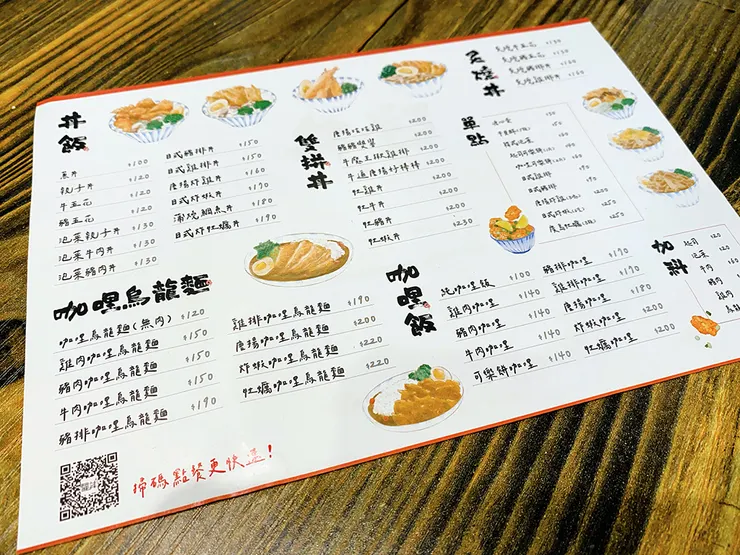 丼飯
無丼 $100
親子丼 $120
牛五花 $120
豬五花 $120
泡菜親子丼 $130
泡菜牛肉丼 $130
泡菜豬肉丼 $130
日式豬排丼 $150
日式雞排丼 $150
唐揚炸雞丼 $160
日式炸蝦丼 $170
蒲燒鯛魚丼 $180
日式炸牡蠣丼 $190
雙拼丼
唐揚咕咕雞 $200
豬豬雙饗 $200
牛魔王挺雞排 $200
牛逼唐揚好棒棒 $200
牡雞丼 $200
牡牛丼 $200
牡豬丼 $200
牡蝦丼 $230
炙燒丼
炙燒牛五花 $130
炙燒豬五花 $130
炙燒豬排丼 $150
炙燒雞排丼 $150
單點
日式雞排
日式豬排
加料
起司
泡菜
牛肉
豬肉
雞肉
咖哩烏龍麵
咖哩烏龍麵(無肉) $120
雞肉咖哩烏龍麵 $150
豬肉咖哩烏龍麵 $150
牛肉咖哩烏龍麵 $150
豬排咖哩烏龍麵 $190
雞排咖哩烏龍麵 $190
唐揚咖哩烏龍麵 $200
炸蝦咖哩烏龍麵 $200
牡蠣咖哩烏龍麵 $220
咖哩飯
咖哩飯 $100
雞肉咖哩 $140
豬肉咖哩 $140
牛肉咖哩 $140
可樂餅咖哩 $140
豬排咖哩 $170
雞排咖哩 $170
唐揚咖哩 $180
炸蝦咖哩 $190
牡蠣咖哩 $200
掃碼點餐更快速!